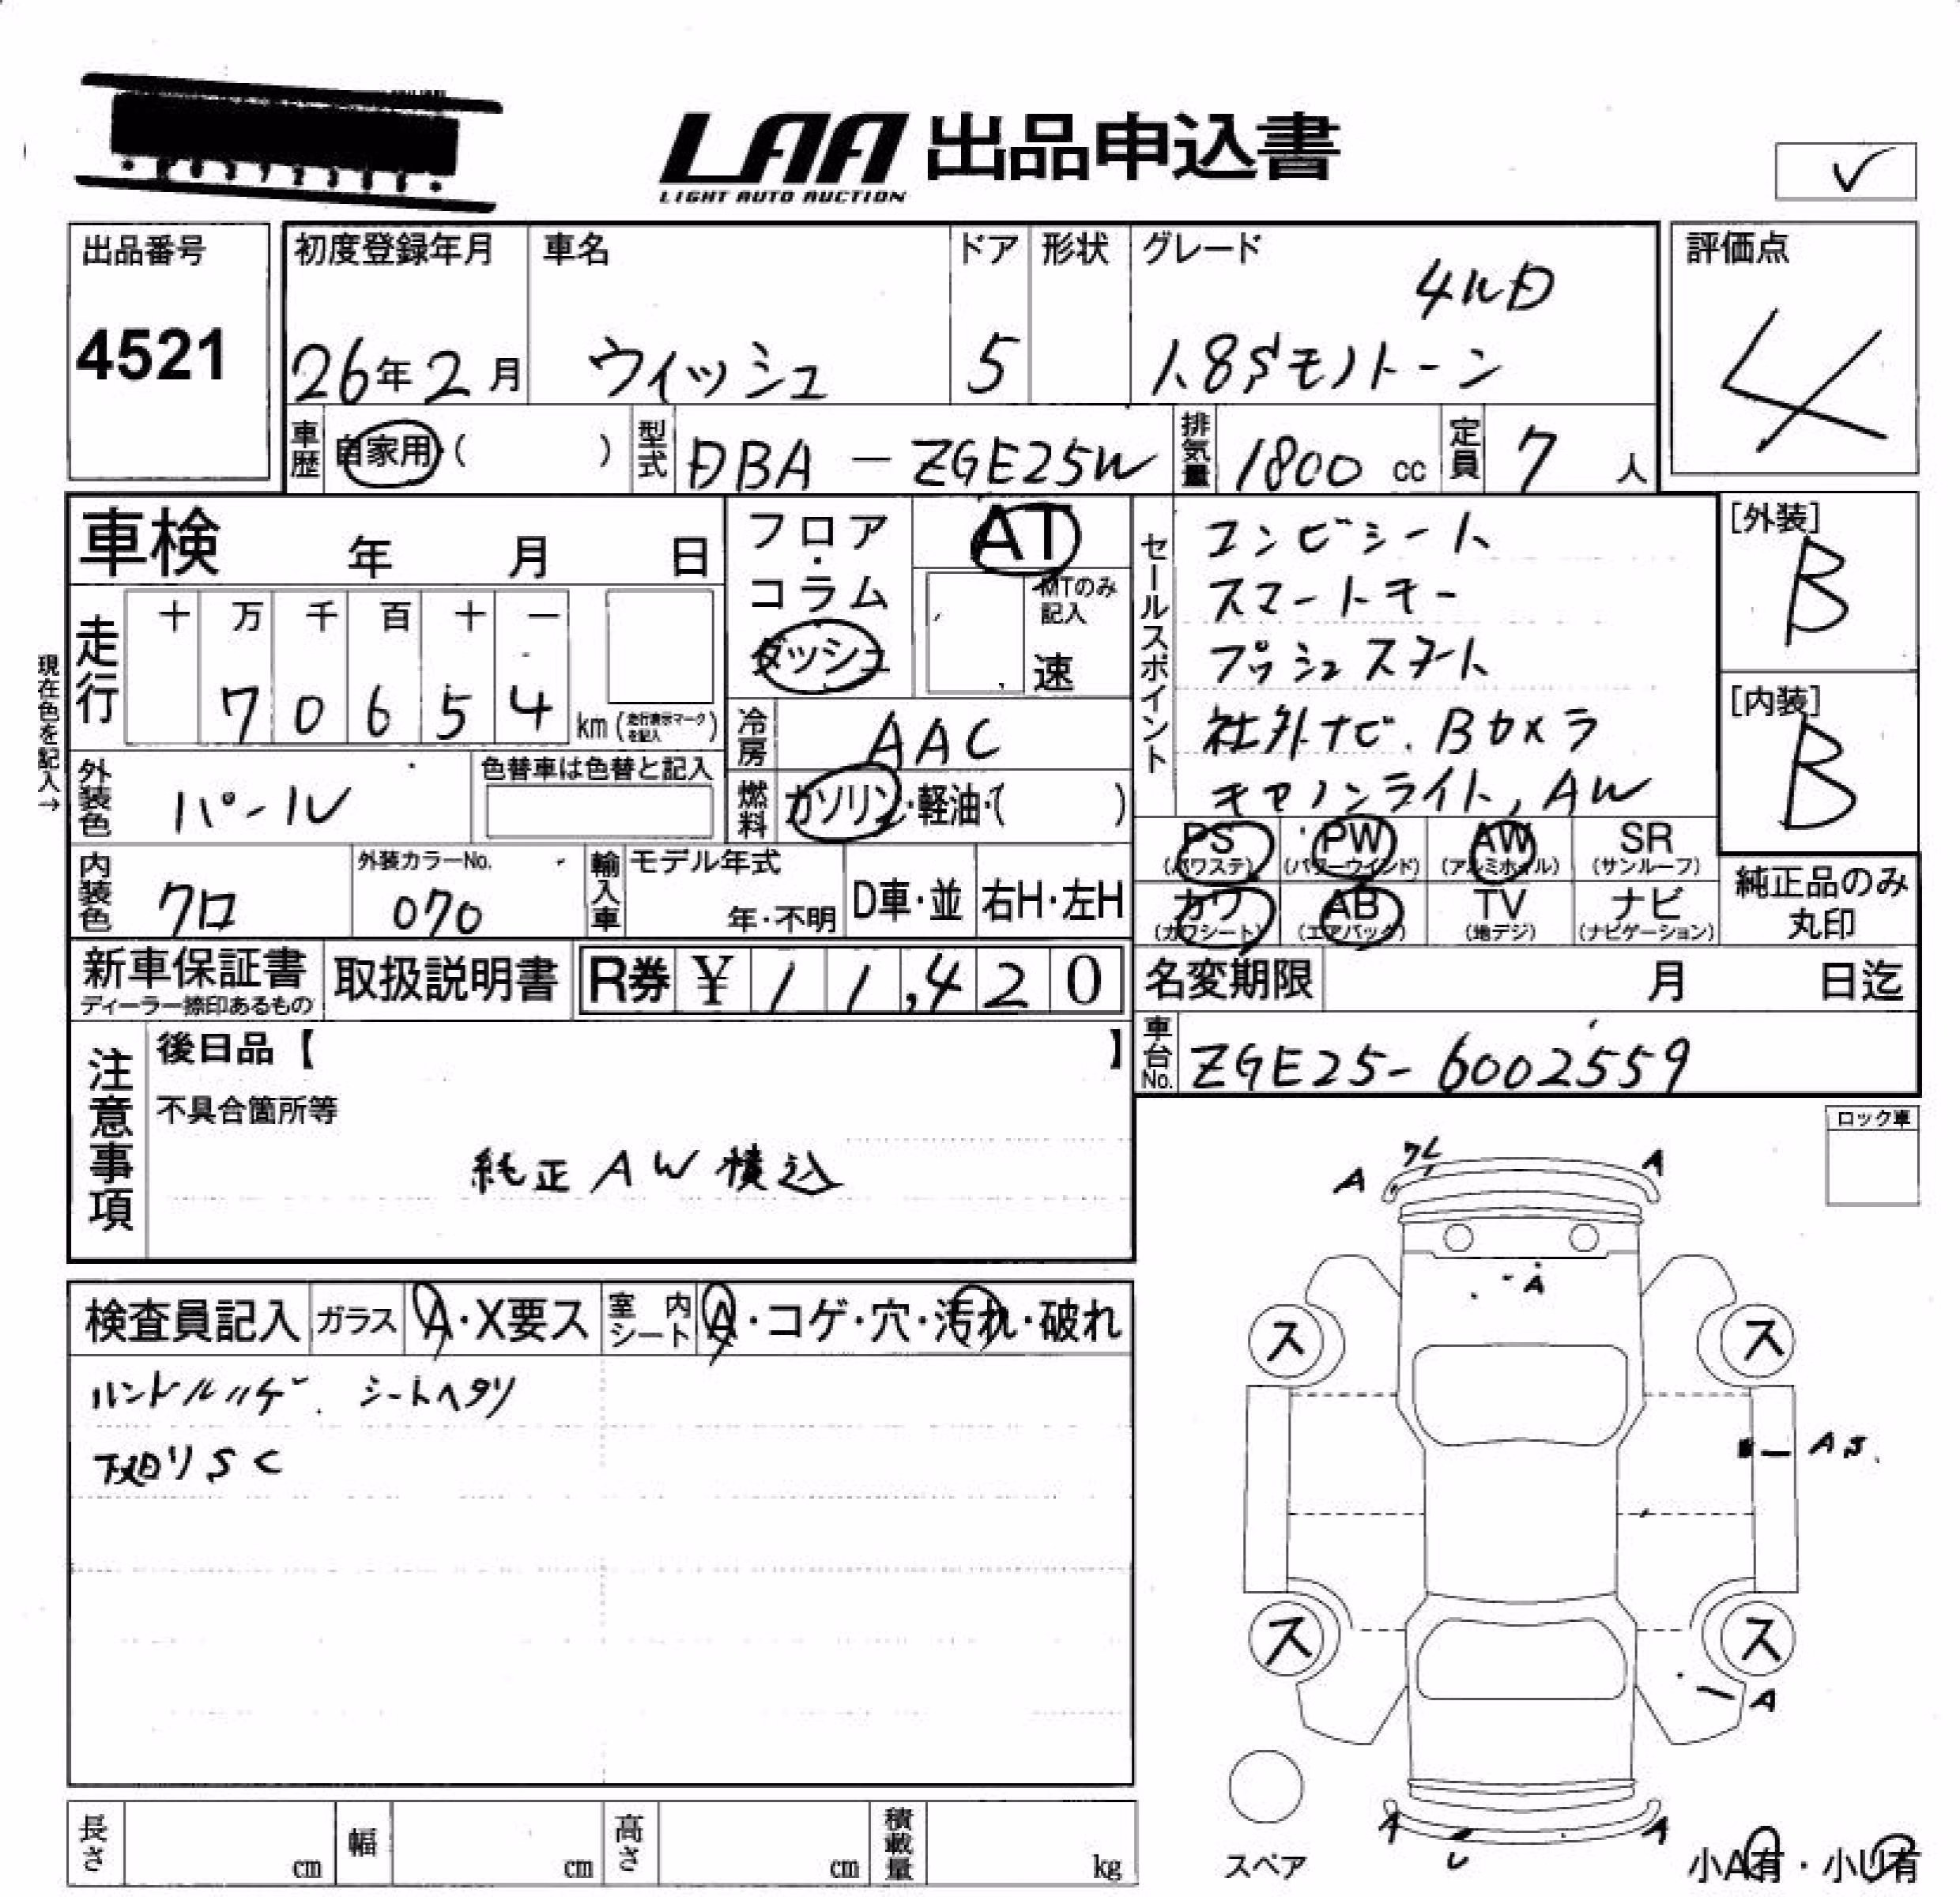 LAA 出品申込書
LIGHT AUTO AUCTION
✓
出品番号
4521
初度登録年月
26年2月
車名
ウィッシュ
ドア
5
形状
グレード
4WD
1.8Sモノトーン
評価点
4
車歴 自家用・( )
型式 DBA-ZGE25W
排気量 1800 cc
定員 7 人
車検 年 月 日
フロア・コラム
ダッシュ
AT
MTのみ記入
速
セールスポイント
コンビシート
スマートキー
プッシュスタート
社外ナビ、Bカメラ
キセノンライト, AW
[外装]
B
[内装]
B
現在色を記入→
走行
十 万 千 百 十 一
7 0 6 5 4 km (走行表示マークを記入)
冷房 AAC
外装色 パール
色替車は色替と記入
燃料 ガソリン・軽油・( )
PS (パワステ)
PW (パワーウインド)
AW (アルミホイル)
SR (サンルーフ)
カワ (カワシート)
AB (エアバック)
TV (地デジ)
ナビ (ナビゲーション)
純正品のみ
丸印
内装色 クロ
外装カラーNo.
070
輸入車
モデル年式
年・不明
D車・並
右H・左H
新車保証書
ディーラー捺印あるもの
取扱説明書
R券 ¥ 1 1,4 2 0
名変期限 月 日迄
車台No. ZGE25-6002559
注意事項
後日品【 】
不具合箇所等
純正AW積込
ロック車
検査員記入
ガラス A・X要ス
室内シート A・コゲ・穴・汚れ・破れ
ハンドルハゲ. シートヘタリ
下廻りSC
A
A
A
ス
ス
ス
ス
A
A
A
U
スペア
小A有・小U有
長さ cm
幅 cm
高さ cm
積載量 kg